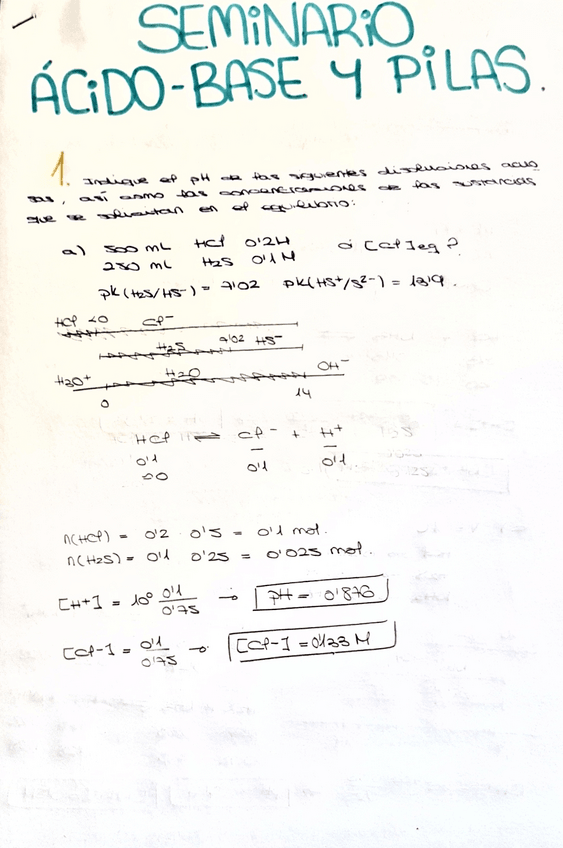 SEMINARIO
ÁCIDO-BASE Y PILAS.
1. Indique el pH de las siguientes disoluciones acuo
sas, así como las concentraciones de las sustancias
que se solicitan en el equilibrio:
a) 500 mL HCl 0'2M ¿[Cl]eq?
250 mL H2S 0'1M
pk(H2S/HS-) = 7'02 pk(HS+/S2-) = 13'9.
HCl <0 Cl-
H2S 7'02 HS-
H3O+ H2O OH-
0 14
HCl ⇌ Cl- + H+
0'1 — —
≈0 0'1 0'1
n(HCl) = 0'2 0'5 = 0'1 mol.
n(H2S) = 0'1 0'25 = 0'025 mol.
[H+] = 10⁰ 0'1/0'75 → pH = 0'876
[Cl-] = 0'1/0'75 → [Cl-] = 0'133 M